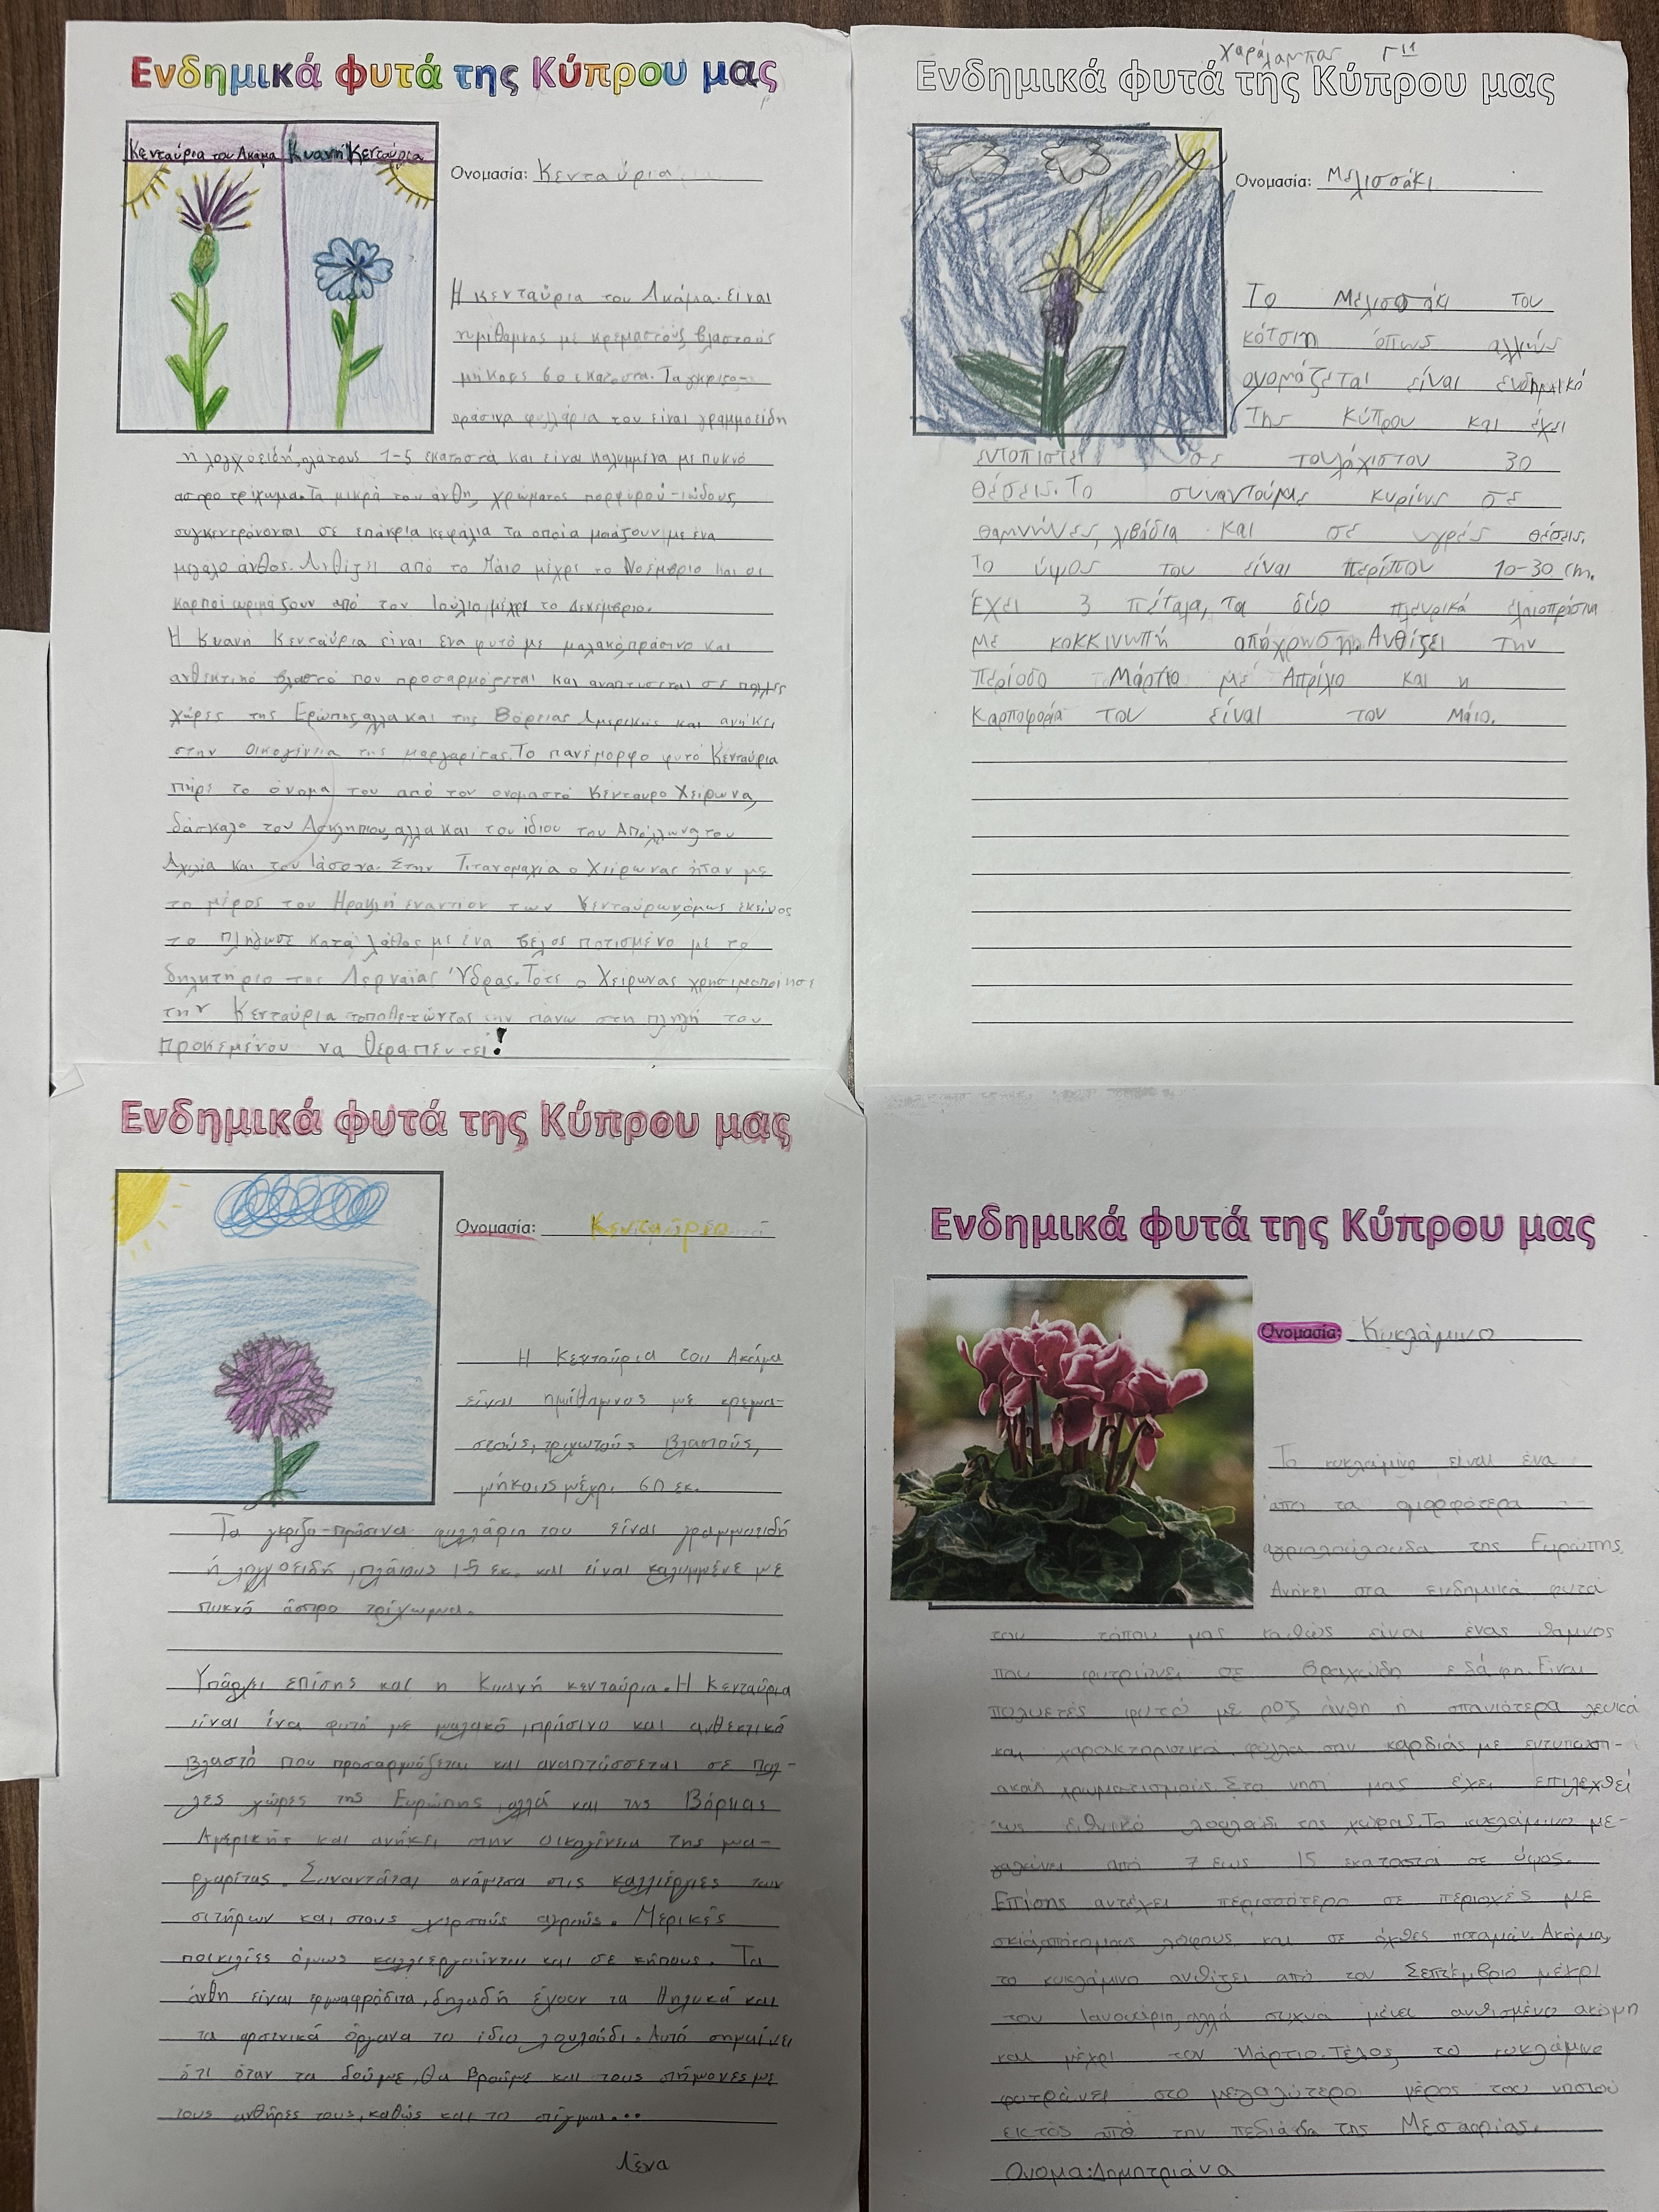 Ενδημικά φυτά της Κύπρου μας
Κενταύρια του Ακάμα Κυανή Κενταύρια
Ονομασία: Κενταύρια
Η κενταύρια του Ακάμα. είναι
ημίθαμνος με κρεμαστούς βλαστούς
μήκους 60 εκατοστα. Τα γκριζο-
πράσινα φυλλάρια του είναι γραμμοειδη
η λογχοειδή, πλάτους 1-5 εκατοστά και είναι καλυμμένα με πυκνό
ασπρο τρίχωμα. Τα μικρά του άνθη, χρώματος πορφυρού-ιώδους,
συγκεντρόνονται σε επάκρια κεφάλια τα οποία μοιάζουν με ένα
μεγαλο άνθος. Ανθίζει από το Μάιο μέχρι το Νοέμβριο και οι
καρποί ωριμάζουν από τον Ιούλιο μέχρι το Δεκέμβριο.
Η Κυανή Κενταύρια είναι ενα φυτό με μαλακό, πράσινο και
ανθεκτικό βλαστό που προσαρμόζεται και αναπτύσεται σε πολλές
χώρες της Ερώπης, αλλα και της Βόρειας Αμερικής και ανήκει
στην οικογένεια της μαργαρίτας. Το πανέμορφο φυτό Κενταύρια
πήρε το όνομα του από τον ονομαστό Κένταυρο Χείρωνα,
δάσκαλο του Ασκληπιου, αλλα και του ίδιου του Απόλλωνα, του
Αχιλλέα και του Ιάσονα. Στην Τιτανομαχία ο Χείρωνας ήταν με
το μέρος του Ηρακλή εναντίον των Κενταύρων, όμως εκείνος
το πλήγωσε κατά λάθος με ένα βέλος ποτισμένο με το
δηλητήριο της Λερναίας Ύδρας. Τότε ο Χείρωνας χρησιμοποίησε
την Κενταύρια τοποθετώντας την πάνω στη πληγή του
προκεμένου να θεραπευτεί!
Χαράλαμπος Γ'11
Ενδημικά φυτά της Κύπρου μας
Ονομασία: Μελισσάκι
Το Μελισσάκι του
κότσιη όπως αλλιώς
ονομάζεται είναι ενδημικό
της Κύπρου και έχει
εντοπιστεί σε τουλάχιστον 30
θέσεις. Το συναντούμε κυρίως σε
θαμνώνες, λιβάδια και σε υγρές θέσεις.
Το ύψος του είναι περίπου 10-30 cm.
Έχει 3 πέταλα, τα δύο πλευρικά ελαιοπράσινα
με κοκκινωπή απόχρωση. Ανθίζει την
περίοδο Μάρτιο με Απρίλιο και η
καρποφορία του είναι τον Μάιο.
Ενδημικά φυτά της Κύπρου μας
Ονομασία: Κενταύρια
Η Κενταύρια του Ακάμα
είναι ημίθαμνος με κρεμα-
στούς, τριχωτούς βλαστούς,
μήκους μέχρι 60 εκ.
Τα γκριζο-πράσινα φυλλάρια του είναι γραμμοειδή
ή λογχοειδή, πλάτους 1-5 εκ. και είναι καλυμμένα με
πυκνό άσπρο τρίχωμα.
Υπάρχει επίσης και η Κυανή κενταύρια. Η Κενταύρια
είναι ένα φυτό με μαλακό, πράσινο και ανθεκτικό
βλαστό που προσαρμόζεται και αναπτύσσεται σε πολ-
λές χώρες της Ευρώπης, αλλά και της Βόρειας
Αμερικής και ανήκει στην οικογένεια της μα-
ργαρίτας. Συναντάται ανάμεσα στις καλλιέργιες των
σιτηρών και στους χερσούς αγρούς. Μερικές
ποικιλίες όμως καλλιεργούνται και σε κήπους. Τα
άνθη είναι ερμαφρόδιτα, δηλαδή έχουν τα θηλυκά και
τα αρσενικά όργανα το ίδιο λουλούδι. Αυτό σημαίνει
ότι όταν τα δούμε, θα βρούμε και τους στήμονες με
τους ανθήρες τους, καθώς και το στίγμα...
Λένα
Ενδημικά φυτά της Κύπρου μας
Ονομασία: Κυκλάμινο
Το κυκλάμινο είναι ένα
από τα ομορφότερα
αγριολούλουδα της Ευρώπης.
Ανήκει στα ενδημικά φυτά
του τόπου μας καθώς είναι ένας θάμνος
που φυτρώνει σε βραχώδη εδάφη. Είναι
πολυετές φυτό με ροζ άνθη ή σπανιότερα λευκά
και χαρακτηριστικά φύλλα σαν καρδιάς με εντυπωσι-
ακούς χρωματισμούς. Στο νησί μας έχει επιλεχθεί
ως εθνικό λουλούδι της χώρας. Το κυκλάμινο με-
γαλώνει από 7 εως 15 εκατοστά σε ύψος.
Επίσης αντέχει περισσότερο σε περιοχές με
σκιά, απόκρημνους λόφους και σε όχθες ποταμών. Ακόμα,
το κυκλάμινο ανθίζει από τον Σεπτέμβριο μέχρι
τον Ιανουάριο, αλλά συχνά μένει ανθισμένο ακόμη
και μέχρι τον Μάρτιο. Τέλος το κυκλάμινο
φυτρώνει στο μεγαλύτερο μέρος του νησιού
εκτός από την πεδιάδα της Μεσαορίας.
Ονομα: Δημητριάνα